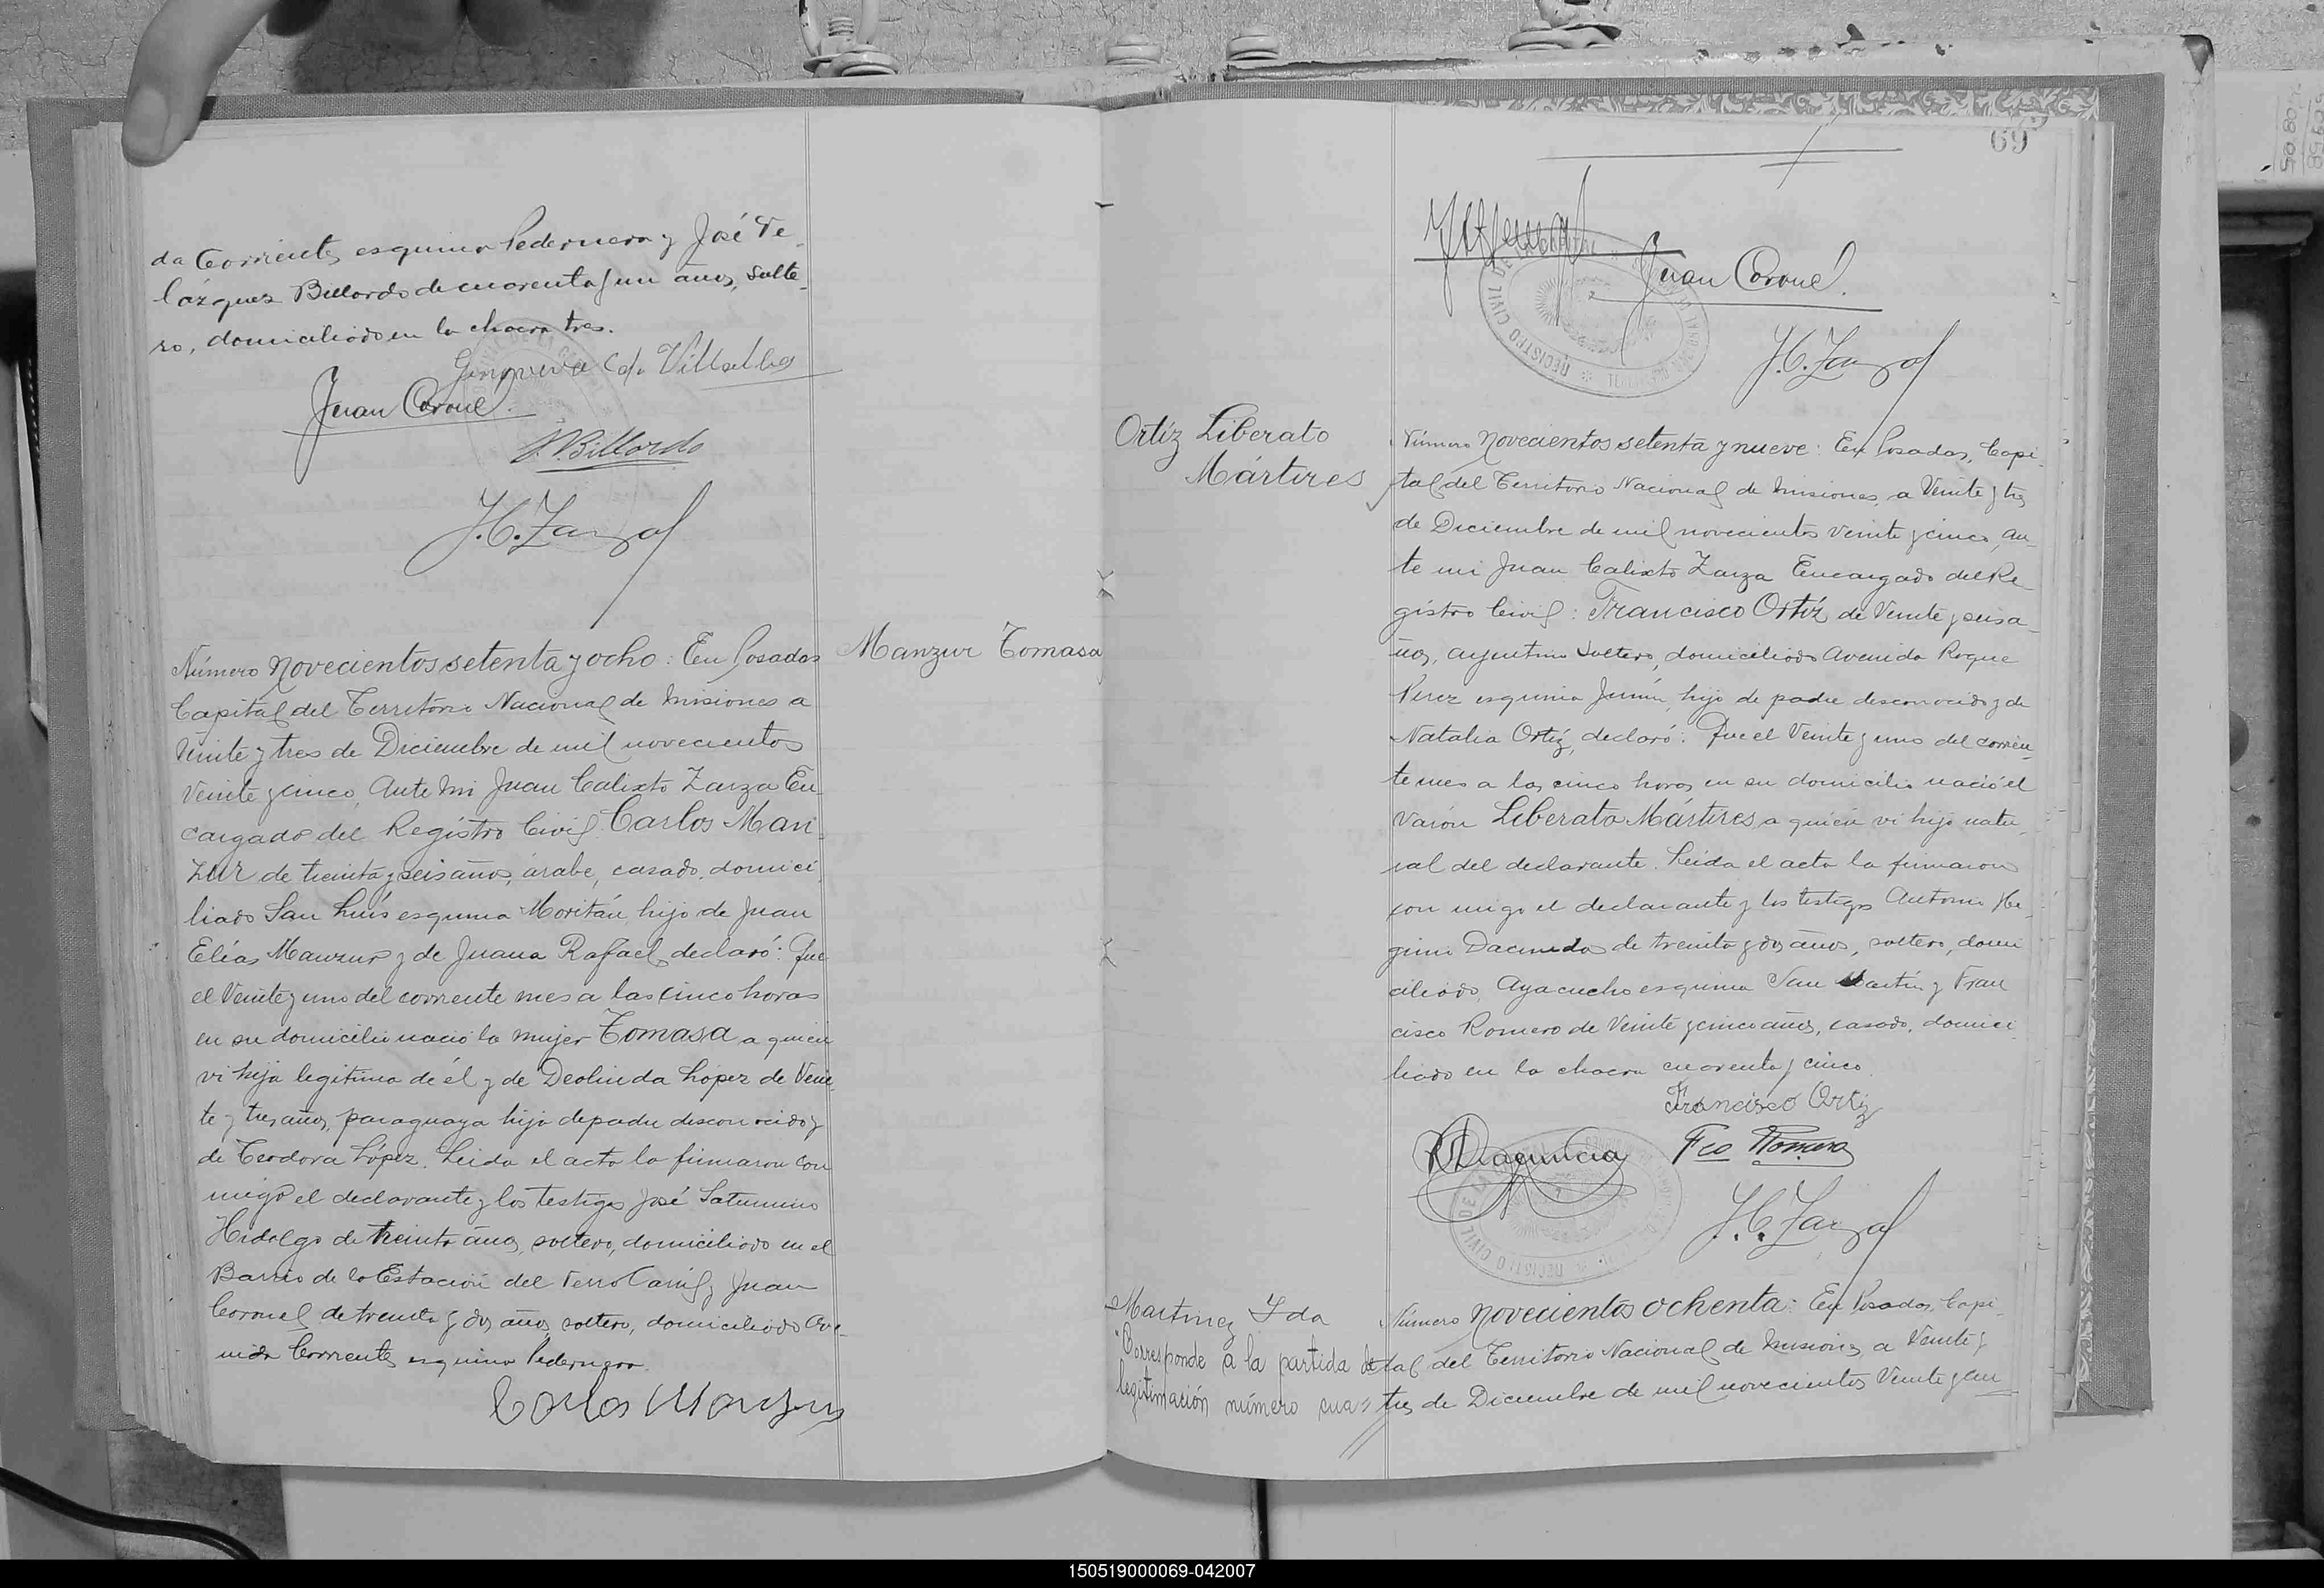 da Corrientes esquina Pedernera y José Ve-
lázquez Billordo de cuarenta y un años, solte-
ro, domiciliado en la chacra tres.
Genoveva C. de Villalba
Juan Coronel.
J. Billordo
J.C. Zarza
Número novecientos setenta y ocho: En Posadas
Manzur Tomasa
Capital del Territorio Nacional de Misiones a
veinte y tres de Diciembre de mil novecientos
veinte y cinco, Ante mi Juan Calixto Zarza En-
cargado del Registro Civil: Carlos Man-
zur de treinta y seis años, árabe, casado, domici-
liado San Luís esquina Moritán, hijo de Juan
Elías Manzur y de Juana Rafael, declaró: Que
el veinte y uno del corriente mes a las cinco horas
en su domicilio nació la mujer Tomasa a quien
vi hija legítima de él y de Deolinda López de vein-
te y tres años, paraguaya hija de padre desconocido y
de Teodora López. Leida el acta la firmaron con
migo el declarante y los testigos José Saturnino
Hidalgo de treinta años, soltero, domiciliado en el
Barrio de la Estación del Ferro Carril y Juan
Coronel de treinta y dos años soltero, domiciliado Ave-
nida Corrientes esquina Pedernera.
Carlos Manzur
69
Juan Coronel.
J.C. Zarza
REGISTRO CIVIL DE LA CAPITAL
Ortíz Liberato
Mártires
Número novecientos setenta y nueve: En Posadas, Capi-
tal del Territorio Nacional de Misiones, a veinte y tres
de Diciembre de mil novecientos veinte y cinco, an-
te mi Juan Calixto Zarza Encargado del Re-
gistro Civil: Francisco Ortíz de veinte y seis a-
ños, argentino soltero, domiciliado Avenida Roque
Perez esquina Junín, hijo de padre desconocido y de
Natalia Ortíz, declaró: Que el veinte y uno del corrien-
te mes a las cinco horas en su domicilio nació el
varón Liberato Mártires, a quién vi hijo natu-
ral del declarante. Leida el acta la firmaron
con migo el declarante y los testigos Antonio He-
de treinta y dos años, soltero, domi
ciliado, Ayacucho esquina San Martín y Fran
cisco Romero de veinte y cinco años, casado, domici-
liado en la chacra cuarenta y cinco.
Francisco Ortiz
Fco Romero
J.C. Zarza
REGISTRO CIVIL DE LA
Martinez Ida
Número novecientos ochenta: En Posadas, Capi-
"Corresponde a la partida de
tal del Territorio Nacional de Misiones, a veinte y
legitimación número cua=
tres de Diciembre de mil novecientos veinte y cin
150519000069-042007